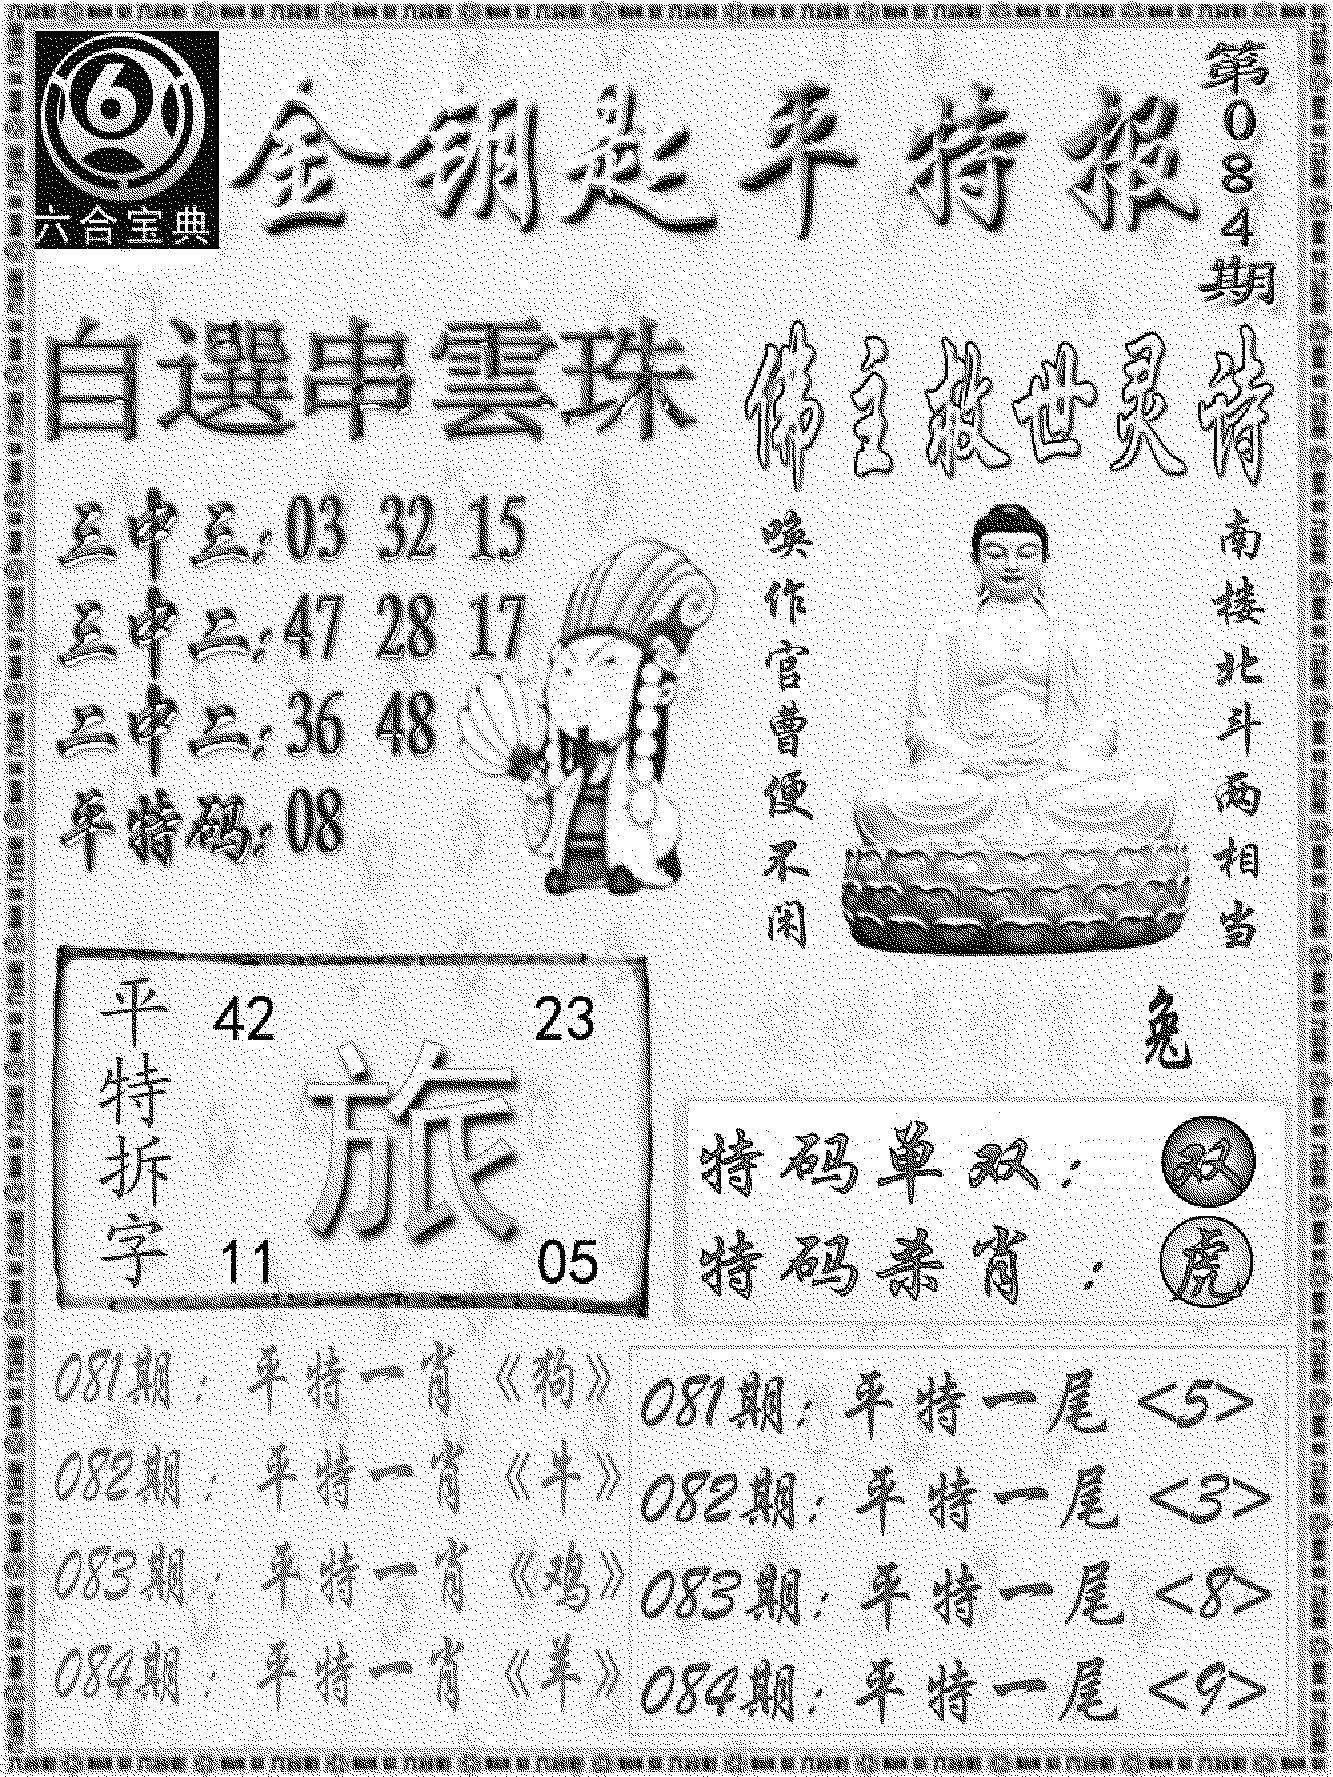 六合宝典
金钥匙平特报
第084期
自選串雲珠
三中三:03 32 15
三中二:47 28 17
二中二:36 48
平特码:08
佛主救世灵诗
南楼北斗两相当
唤作官曹便不闲
兔
平特拆字
42 23
旅
11 05
特码单双:双
特码杀肖:虎
081期:平特一肖《狗》
082期:平特一肖《牛》
083期:平特一肖《鸡》
084期:平特一肖《羊》
081期:平特一尾<5>
082期:平特一尾<3>
083期:平特一尾<8>
084期:平特一尾<9>